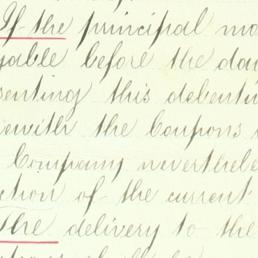 If the principal mo
yable before the da
senting this debentu
ewith the Coupons
Company neverthele
ction of the current
The delivery to the